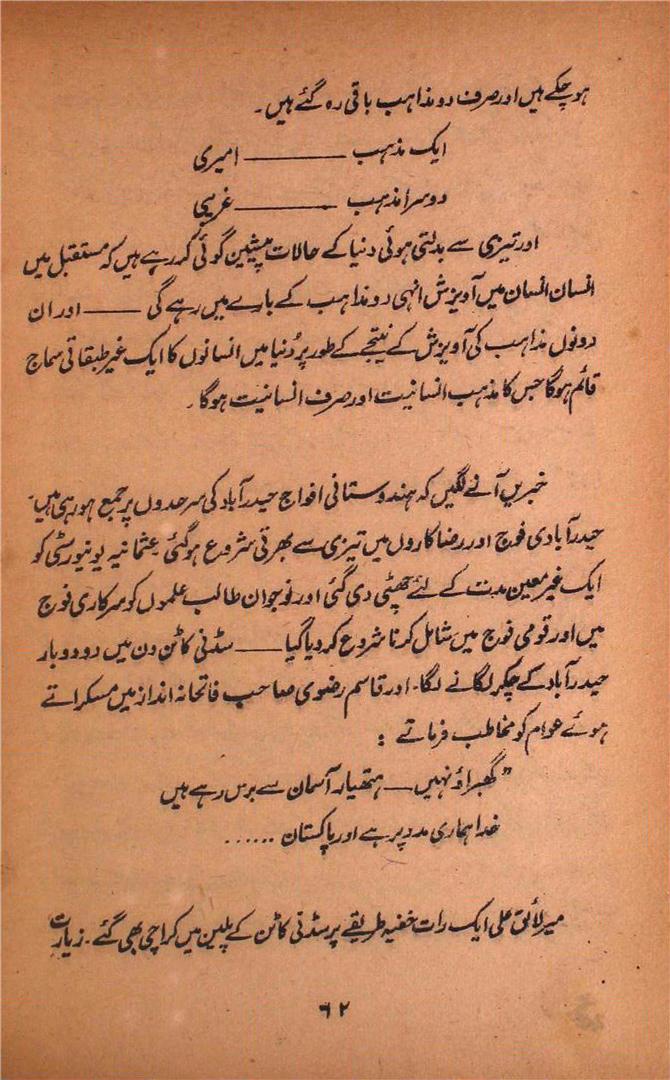 ہو چکے ہیں اور صرف دو مذاہب باقی رہ گئے ہیں۔
ایک مذہب ——— امیری
دوسرا مذہب ——— غریبی
اور تیزی سے بدلتی ہوئی دنیا کے حالات پیشین گوئی کر رہے ہیں کہ مستقبل میں
انسان انسان میں آویزش انہی دو مذاہب کے بارے میں رہے گی ——— اور ان
دونوں مذاہب کی آویزش کے نتیجے کے طور پر دُنیا میں انسانوں کا ایک غیر طبقاتی سماج
قائم ہوگا جس کا مذہب انسانیت اور صرف انسانیت ہوگا۔
خبریں آنے لگیں کہ ہندوستانی افواج حیدرآباد کی سرحدوں پر جمع ہو رہی ہیں۔
حیدرآبادی فوج اور رضاکاروں میں تیزی سے بھرتی شروع ہوگئی عثمانیہ یونیورسٹی کو
ایک غیر معین مدت کے لئے چھٹی دی گئی اور نوجوان طالب علموں کو سرکاری فوج
میں اور قومی فوج میں شامل کرنا شروع کر دیا گیا ——— سڈنی کاٹن دن میں دو دو بار
حیدرآباد کے چکر لگانے لگا۔ اور قاسم رضوی صاحب فاتحانہ انداز میں مسکراتے
ہوئے عوام کو مخاطب فرماتے :
”گھبراؤ نہیں — ہتھیار آسمان سے برس رہے ہیں
خدا ہماری مدد پر ہے اور پاکستان ......
میر لائق علی ایک رات خفیہ طریقے پر سڈنی کاٹن کے پلین میں کراچی بھی گئے۔ زیارت
۶۲